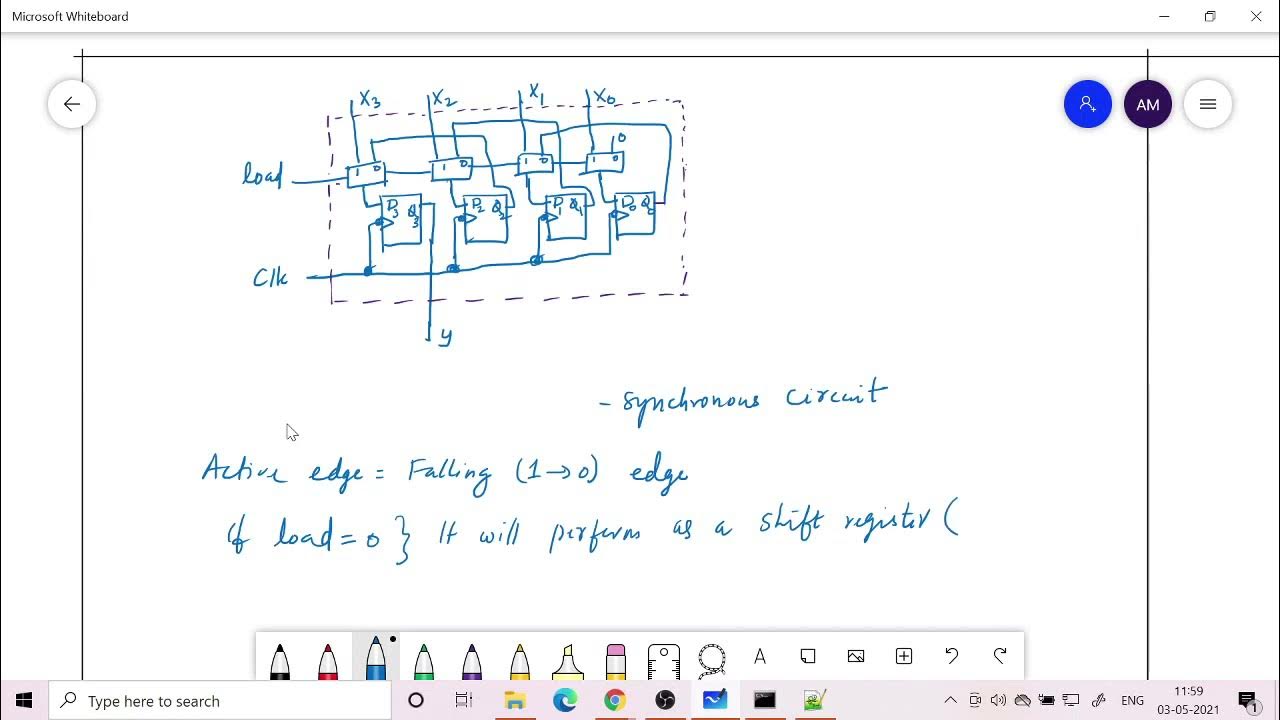 Microsoft Whiteboard
AM
X3 X2 X1 X0
0
load
1 0 1 0 1 0 1 0
D3 Q3 D2 Q2 D1 Q1 D0 Q0
Clk
y
- Synchronous circuit
Active edge = Falling (1→0) edge
If load = 0 } It will perform as a shift register (
A
Type here to search
ENG
11:59
03-05-2021
1